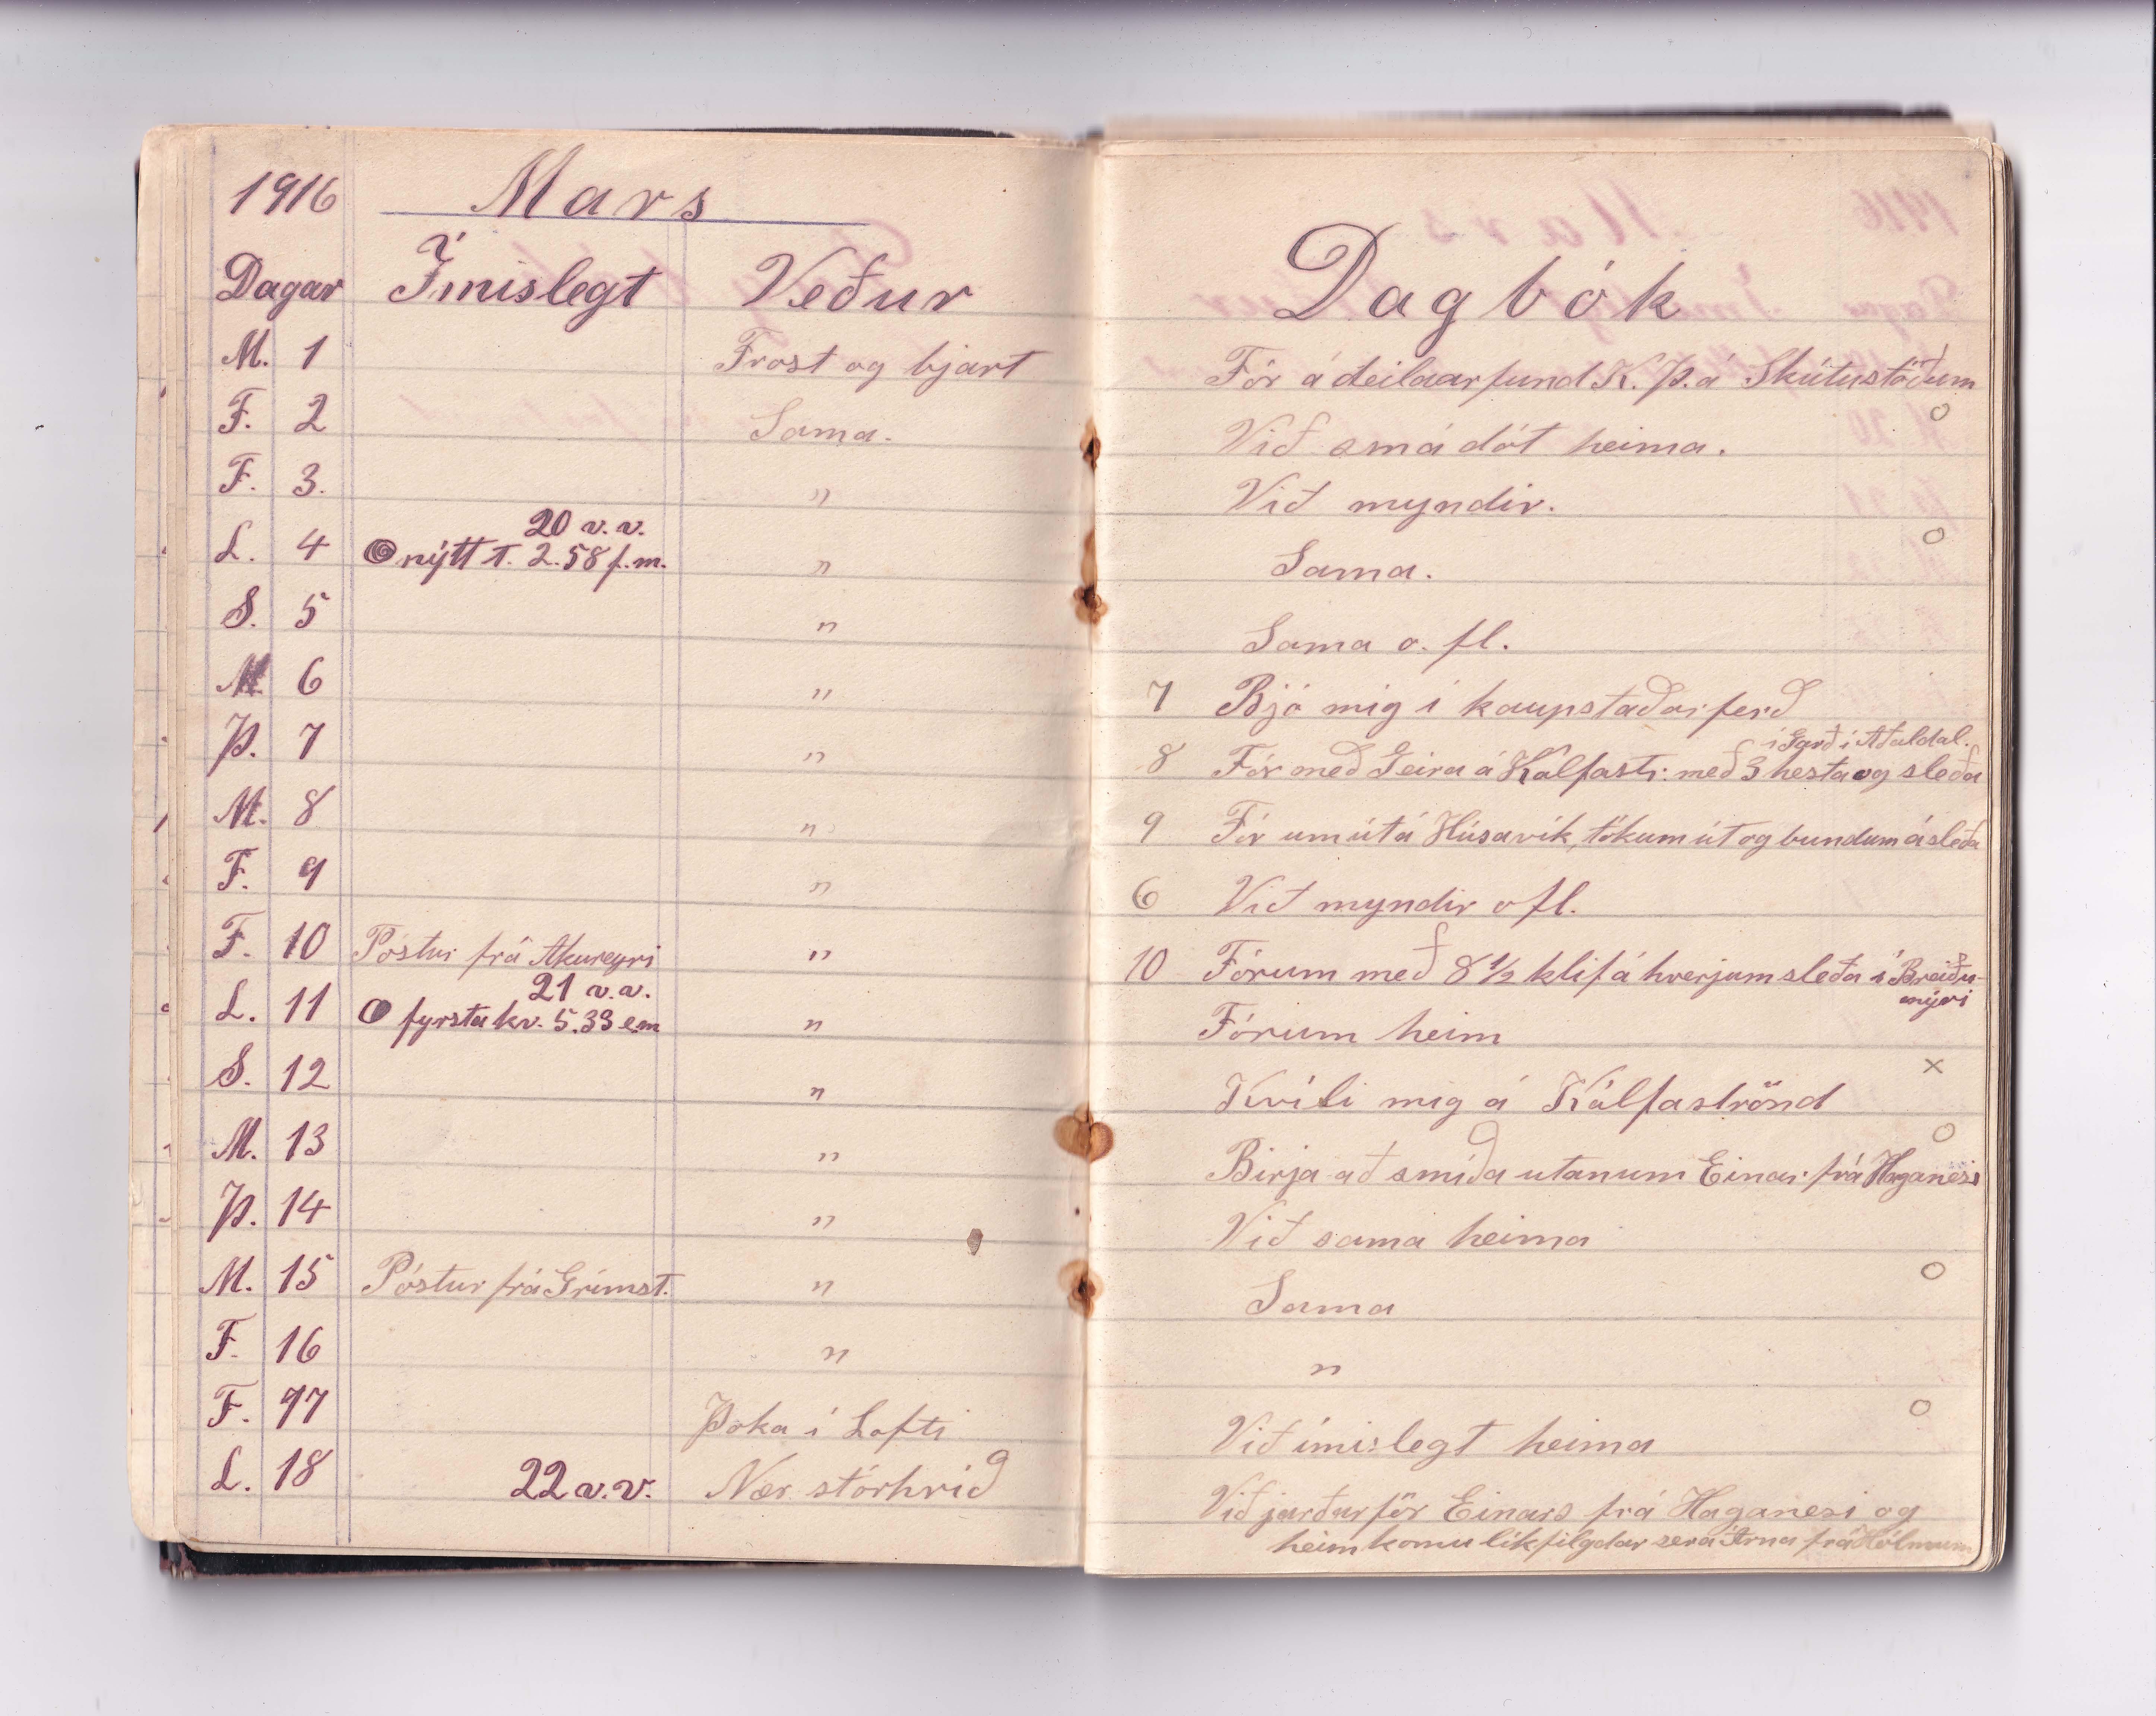 1916 Mars
Dagar Ímislegt Veður
M. 1 Frost og bjart
F. 2 Sama.
F. 3. "
20 v.v.
L. 4 nýtt T. 2.58 f.m. "
S. 5 "
M. 6 "
Þ. 7 "
M. 8 "
F. 9 "
F. 10 Póstur frá Akureyri "
21 v.v.
L. 11 fyrsta kv. 5.33 e.m "
S. 12 "
M. 13 "
Þ. 14 "
M. 15 Póstur frá Grímst. "
F. 16 "
F. 17 Þoka í Lofti
L. 18 22 v.v. Nær stórhríð
Dagbók
Fór á deildarfund K. Þ. á Skútustöðum
Við smádót heima.
Við myndir.
Sama.
Sama o. fl.
7 Bjó mig í kaupstaðarferð
í Garð í Aðaldal.
8 Fór með Geira á Kálfastr: með 3 hesta og sleða
9 Fórum út á Húsavík, tókum út og bundum á sleða
6 Við myndir ofl.
10 Fórum með 8 1/2 klif á hverjum sleða í Breiðu-
mýri
Fórum heim
x
Kvíli mig á Kálfaströnd
Birja að smíða utanum Einar frá Haganesi
Við sama heima
Sama
"
Við ímislegt heima
Við jarðarför Einars frá Haganesi og
heimkomu líkfilgdar sera Árna frá Hólmum